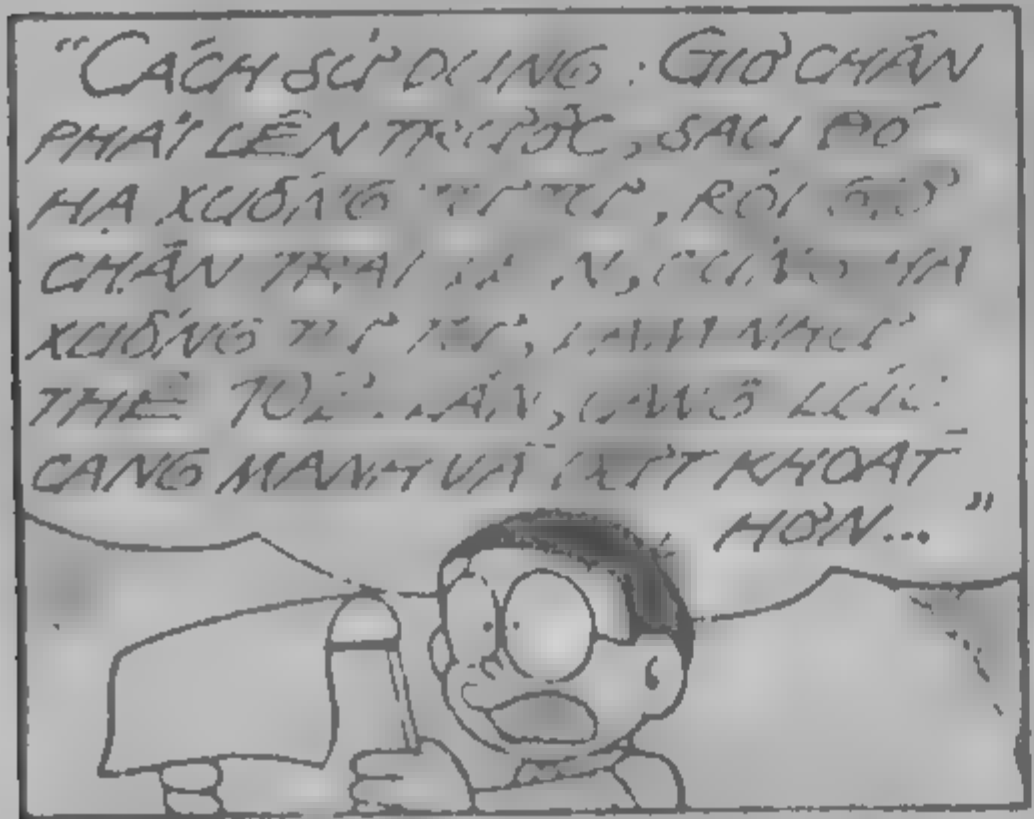 "CÁCH SỬ DỤNG: GIƠ CHÂN
PHẢI LÊN TRƯỚC, SAU ĐÓ
HẠ XUỐNG TỪ TỪ, RỒI GIƠ
CHÂN TRÁI LÊN, CŨNG HẠ
XUỐNG TỪ TỪ, LÀM NHƯ
THẾ LẦN, CÀNG LÚC
CÀNG MẠNH VÀ DỨT KHOÁT
HƠN..."